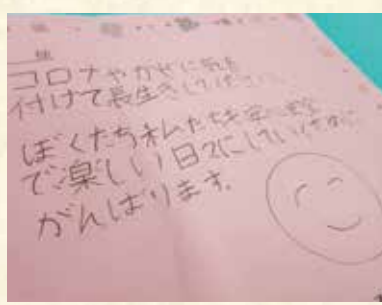 様
コロナやかぜに気を
付けて長生きしてください。
ぼくたち私たちも安心安全
で楽しい日々にしていくために
がんばります。